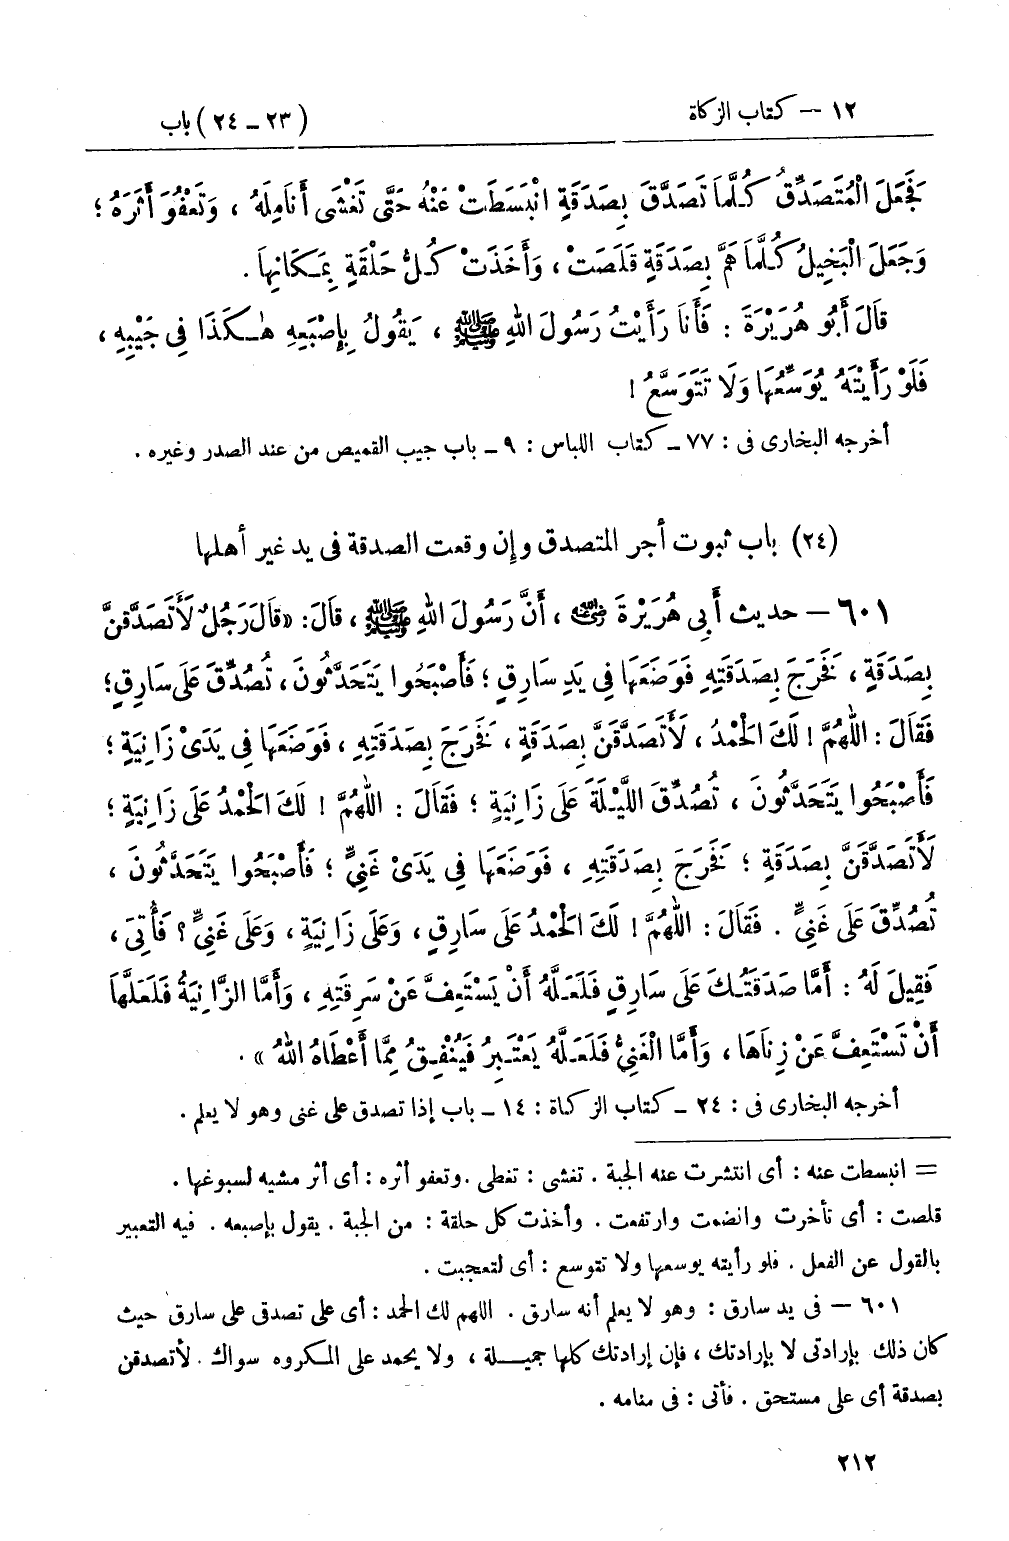 ١٢ — كتاب الزكاة
(٢٣ ــ ٢٤) باب
فَجَعَلَ الْمُتَصَدِّقُ كُلَّمَا تَصَدَّقَ بِصَدَقَةٍ انْبَسَطَتْ عَنْهُ حَتَّى تَغْشَى أَنَامِلَهُ ، وَتَعْفُوَ أَثَرَهُ ؛
وَجَعَلَ الْبَخِيلُ كُلَّمَا هَمَّ بِصَدَقَةٍ قَلَصَتْ ، وَأَخَذَتْ كُلُّ حَلْقَةٍ بِمَكَانِهَا .
قَالَ أَبُو هُرَيْرَةَ : فَأَنَا رَأَيْتُ رَسُولَ اللهِ ﷺ ، يَقُولُ بِإِصْبَعِهِ هٰكَذَا فِي جَيْبِهِ ،
فَلَوْ رَأَيْتَهُ يُوَسِّعُهَا وَلَا تَتَوَسَّعُ !
أخرجه البخارى فى : ٧٧ ــ كتاب اللباس : ٩ ــ باب جيب القميص من عند الصدر وغيره .
(٢٤) باب ثبوت أجر المتصدق وإن وقعت الصدقة فى يد غير أهلها
٦٠١ — حديث أَبِي هُرَيْرَةَ رضي الله عنه ، أَنَّ رَسُولَ اللهِ ﷺ ، قَالَ : «قَالَ رَجُلٌ لَأَتَصَدَّقَنَّ
بِصَدَقَةٍ ، فَخَرَجَ بِصَدَقَتِهِ فَوَضَعَهَا فِي يَدِ سَارِقٍ ؛ فَأَصْبَحُوا يَتَحَدَّثُونَ ، تُصُدِّقَ عَلَى سَارِقٍ ؛
فَقَالَ : اللّٰهُمَّ ! لَكَ الْحَمْدُ ، لَأَتَصَدَّقَنَّ بِصَدَقَةٍ ، فَخَرَجَ بِصَدَقَتِهِ ، فَوَضَعَهَا فِي يَدَىْ زَانِيَةٍ ؛
فَأَصْبَحُوا يَتَحَدَّثُونَ ، تُصُدِّقَ اللَّيْلَةَ عَلَى زَانِيَةٍ ؛ فَقَالَ : اللّٰهُمَّ ! لَكَ الْحَمْدُ عَلَى زَانِيَةٍ ؛
لَأَتَصَدَّقَنَّ بِصَدَقَةٍ ؛ فَخَرَجَ بِصَدَقَتِهِ ، فَوَضَعَهَا فِي يَدَىْ غَنِيٍّ ؛ فَأَصْبَحُوا يَتَحَدَّثُونَ ،
تُصُدِّقَ عَلَى غَنِيٍّ . فَقَالَ : اللّٰهُمَّ ! لَكَ الْحَمْدُ عَلَى سَارِقٍ ، وَعَلَى زَانِيَةٍ ، وَعَلَى غَنِيٍّ ؟ فَأُتِىَ ،
فَقِيلَ لَهُ : أَمَّا صَدَقَتُكَ عَلَى سَارِقٍ فَلَعَلَّهُ أَنْ يَسْتَعِفَّ عَنْ سَرِقَتِهِ ، وَأَمَّا الزَّانِيَةُ فَلَعَلَّهَا
أَنْ تَسْتَعِفَّ عَنْ زِنَاهَا ، وَأَمَّا الْغَنِيُّ فَلَعَلَّهُ يَعْتَبِرُ فَيُنْفِقُ مِمَّا أَعْطَاهُ اللهُ » .
أخرجه البخارى فى : ٢٤ ــ كتاب الزكاة : ١٤ ــ باب إذا تصدق على غنى وهو لا يعلم .
= انبسطت عنه : أى انتشرت عنه الجبة . تغشى : تغطى . وتعفو أثره : أى أثر مشيه لسبوغها .
قلصت : أى تأخرت وانضمت وارتفعت . وأخذت كل حلقة : من الجبة . يقول بإصبعه . فيه التعبير
بالقول عن الفعل . فلو رأيته يوسعها ولا تتوسع : أى لتعجبت .
٦٠١ — فى يد سارق : وهو لا يعلم أنه سارق . اللهم لك الحمد : أى على تصدقى على سارق حيث
كان ذلك بإرادتى لا بإرادتك ، فإن إرادتك كلها جميلة ، ولا يحمد على المكروه سواك . لأتصدقن
بصدقة أى على مستحق . فأتى : فى منامه .
٢١٢